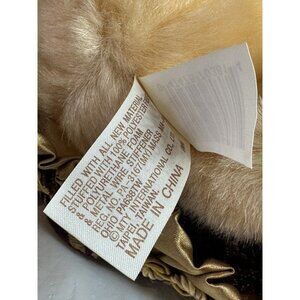 FILLED WITH ALL NEW MATERIAL
STUFFED WITH 100% POLYESTER
POLYURETHANE FOAM
METAL WIRE STIFFENER
REG. NO. PA-5167(MT) MASS
OHIO
©MTY INTERNATIONAL CO., LTD
TAIPEI, TAIWAN
MADE IN CHINA